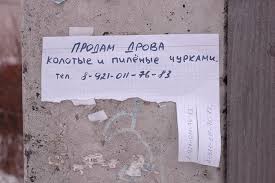 ПРОДАМ ДРОВА
колотые и пилёные чурками.
тел. 8-921-011-76-83